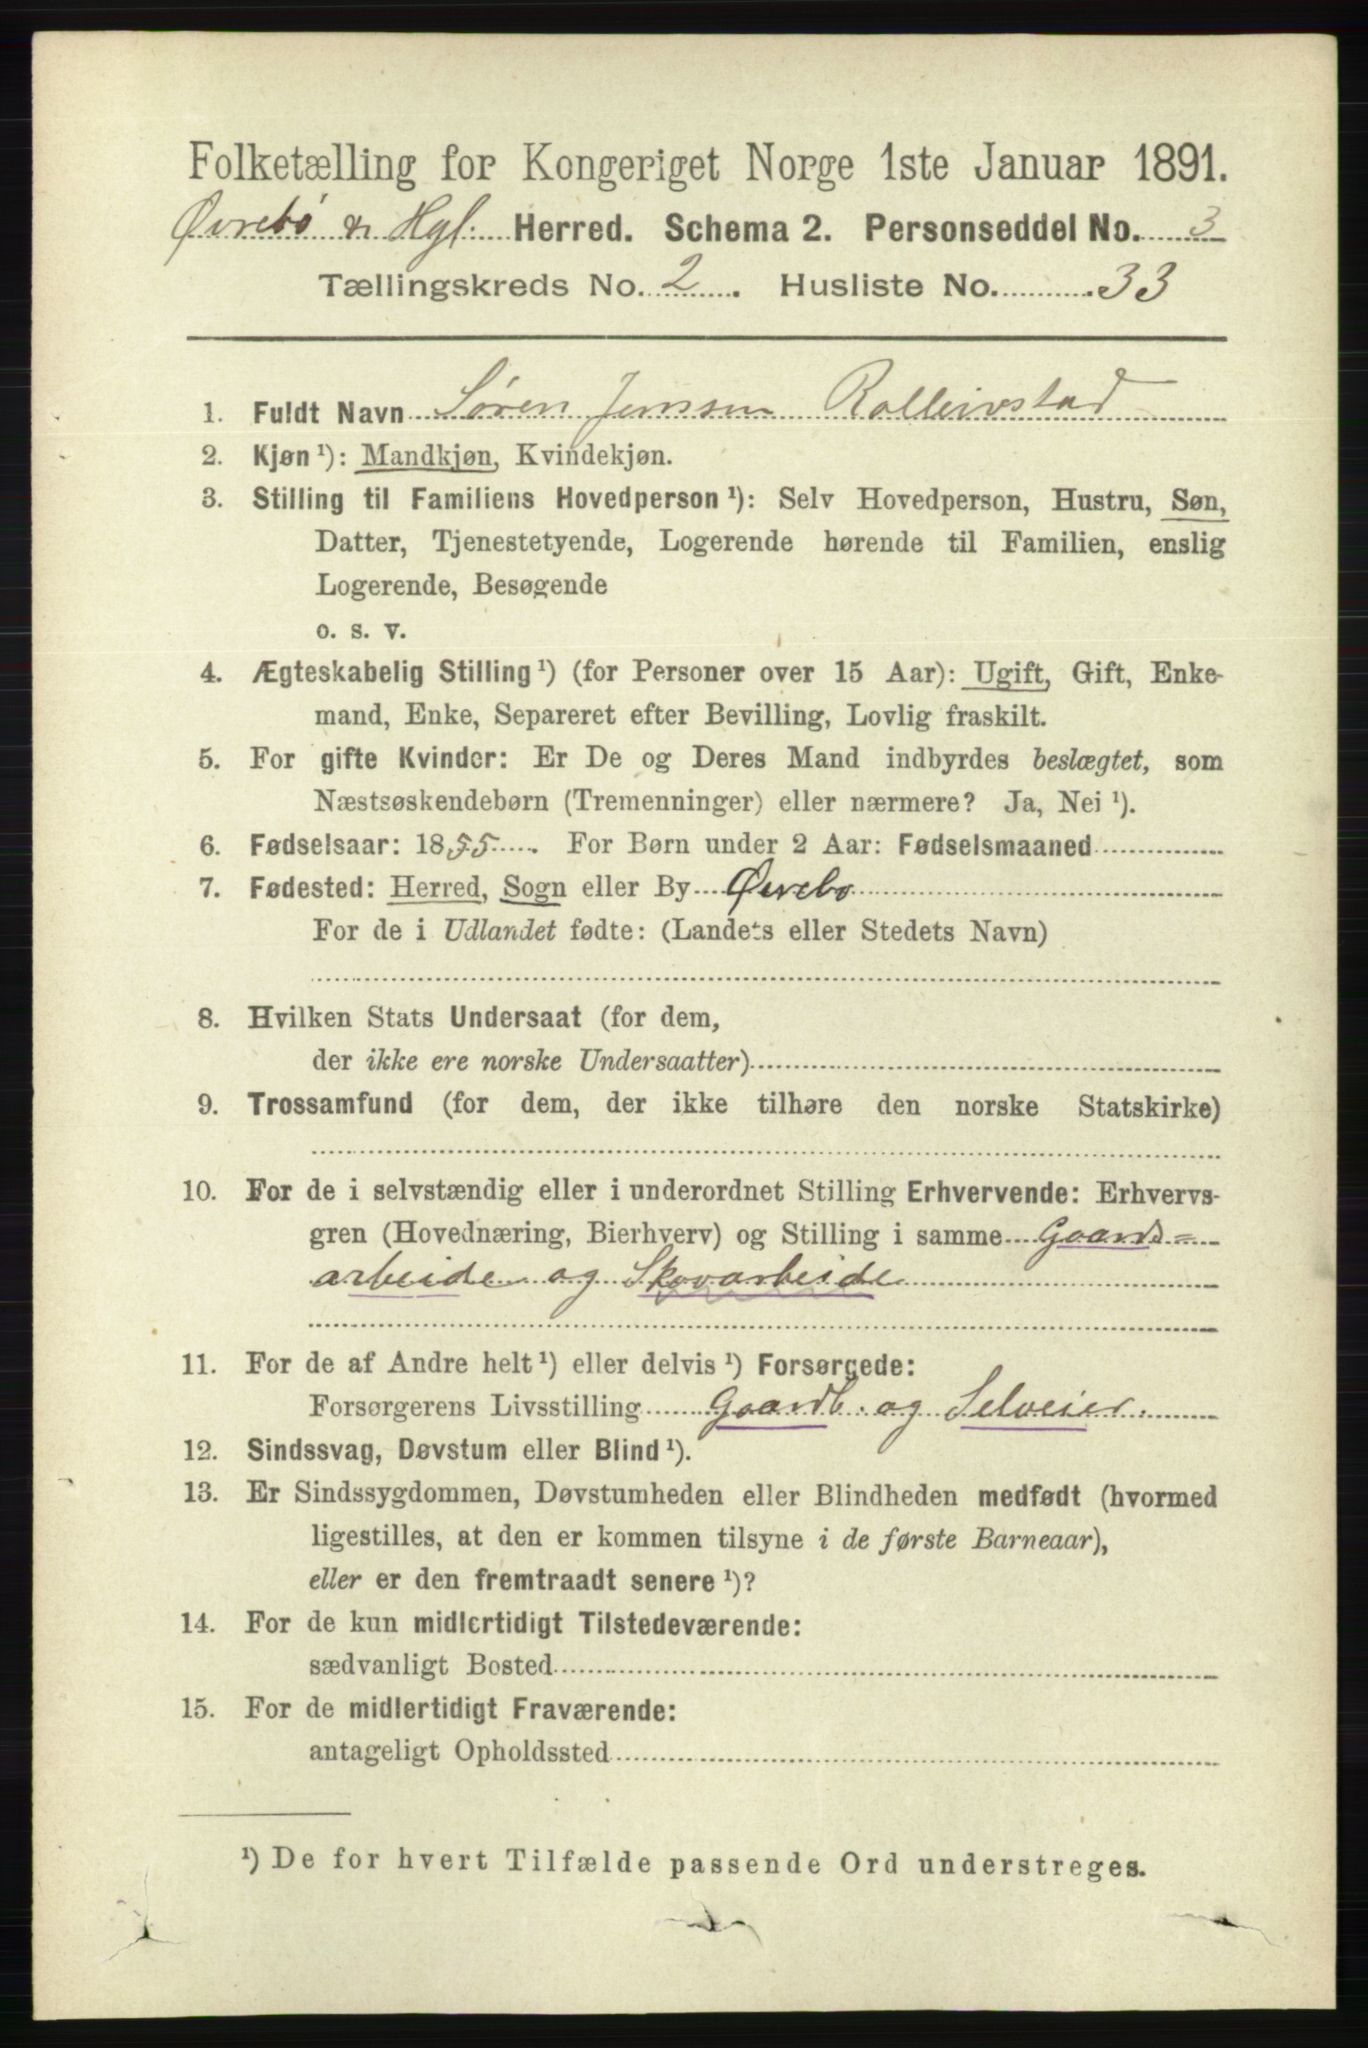 Folketælling for Kongeriget Norge 1ste Januar 1891.
Øvrebø & Hgl. Herred. Schema 2. Personseddel No. 3
Tællingskreds No. 2. Husliste No. 33
1. Fuldt Navn Søren Jensen Rolleivstad
2. Kjøn ¹): Mandkjøn, Kvindekjøn.
3. Stilling til Familiens Hovedperson ¹): Selv Hovedperson, Hustru, Søn,
Datter, Tjenestetyende, Logerende hørende til Familien, enslig
Logerende, Besøgende
o. s. v.
4. Ægteskabelig Stilling ¹) (for Personer over 15 Aar): Ugift, Gift, Enke-
mand, Enke, Separeret efter Bevilling, Lovlig fraskilt.
5. For gifte Kvinder: Er De og Deres Mand indbyrdes beslægtet, som
Næstsøskendebørn (Tremenninger) eller nærmere? Ja, Nei ¹).
6. Fødselsaar: 1855. For Børn under 2 Aar: Fødselsmaaned
7. Fødested: Herred, Sogn eller By Øvrebo
For de i Udlandet fødte: (Landets eller Stedets Navn)
8. Hvilken Stats Undersaat (for dem,
der ikke ere norske Undersaatter)
9. Trossamfund (for dem, der ikke tilhøre den norske Statskirke)
10. For de i selvstændig eller i underordnet Stilling Erhvervende: Erhvervs-
gren (Hovednæring, Bierhverv) og Stilling i samme Gaards=
arbeide og Skovarbeide
11. For de af Andre helt ¹) eller delvis ¹) Forsørgede:
Forsørgerens Livsstilling Gaardb. og Selveier.
12. Sindssvag, Døvstum eller Blind ¹).
13. Er Sindssygdommen, Døvstumheden eller Blindheden medfødt (hvormed
ligestilles, at den er kommen tilsyne i de første Barneaar),
eller er den fremtraadt senere ¹)?
14. For de kun midlertidigt Tilstedeværende:
sædvanligt Bosted
15. For de midlertidigt Fraværende:
antageligt Opholdssted
¹) De for hvert Tilfælde passende Ord understreges.